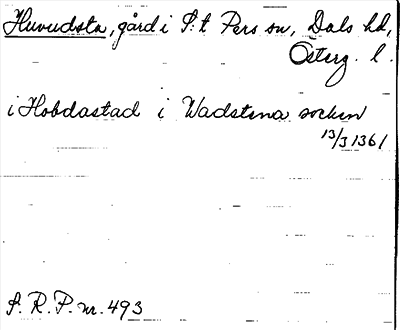 Huvudsta, gård i S:t Pers sn, Dals hd,
Österg. l.
i Hobdastad i Wadstena socken
13/3 1361
S. R. P. nr. 493